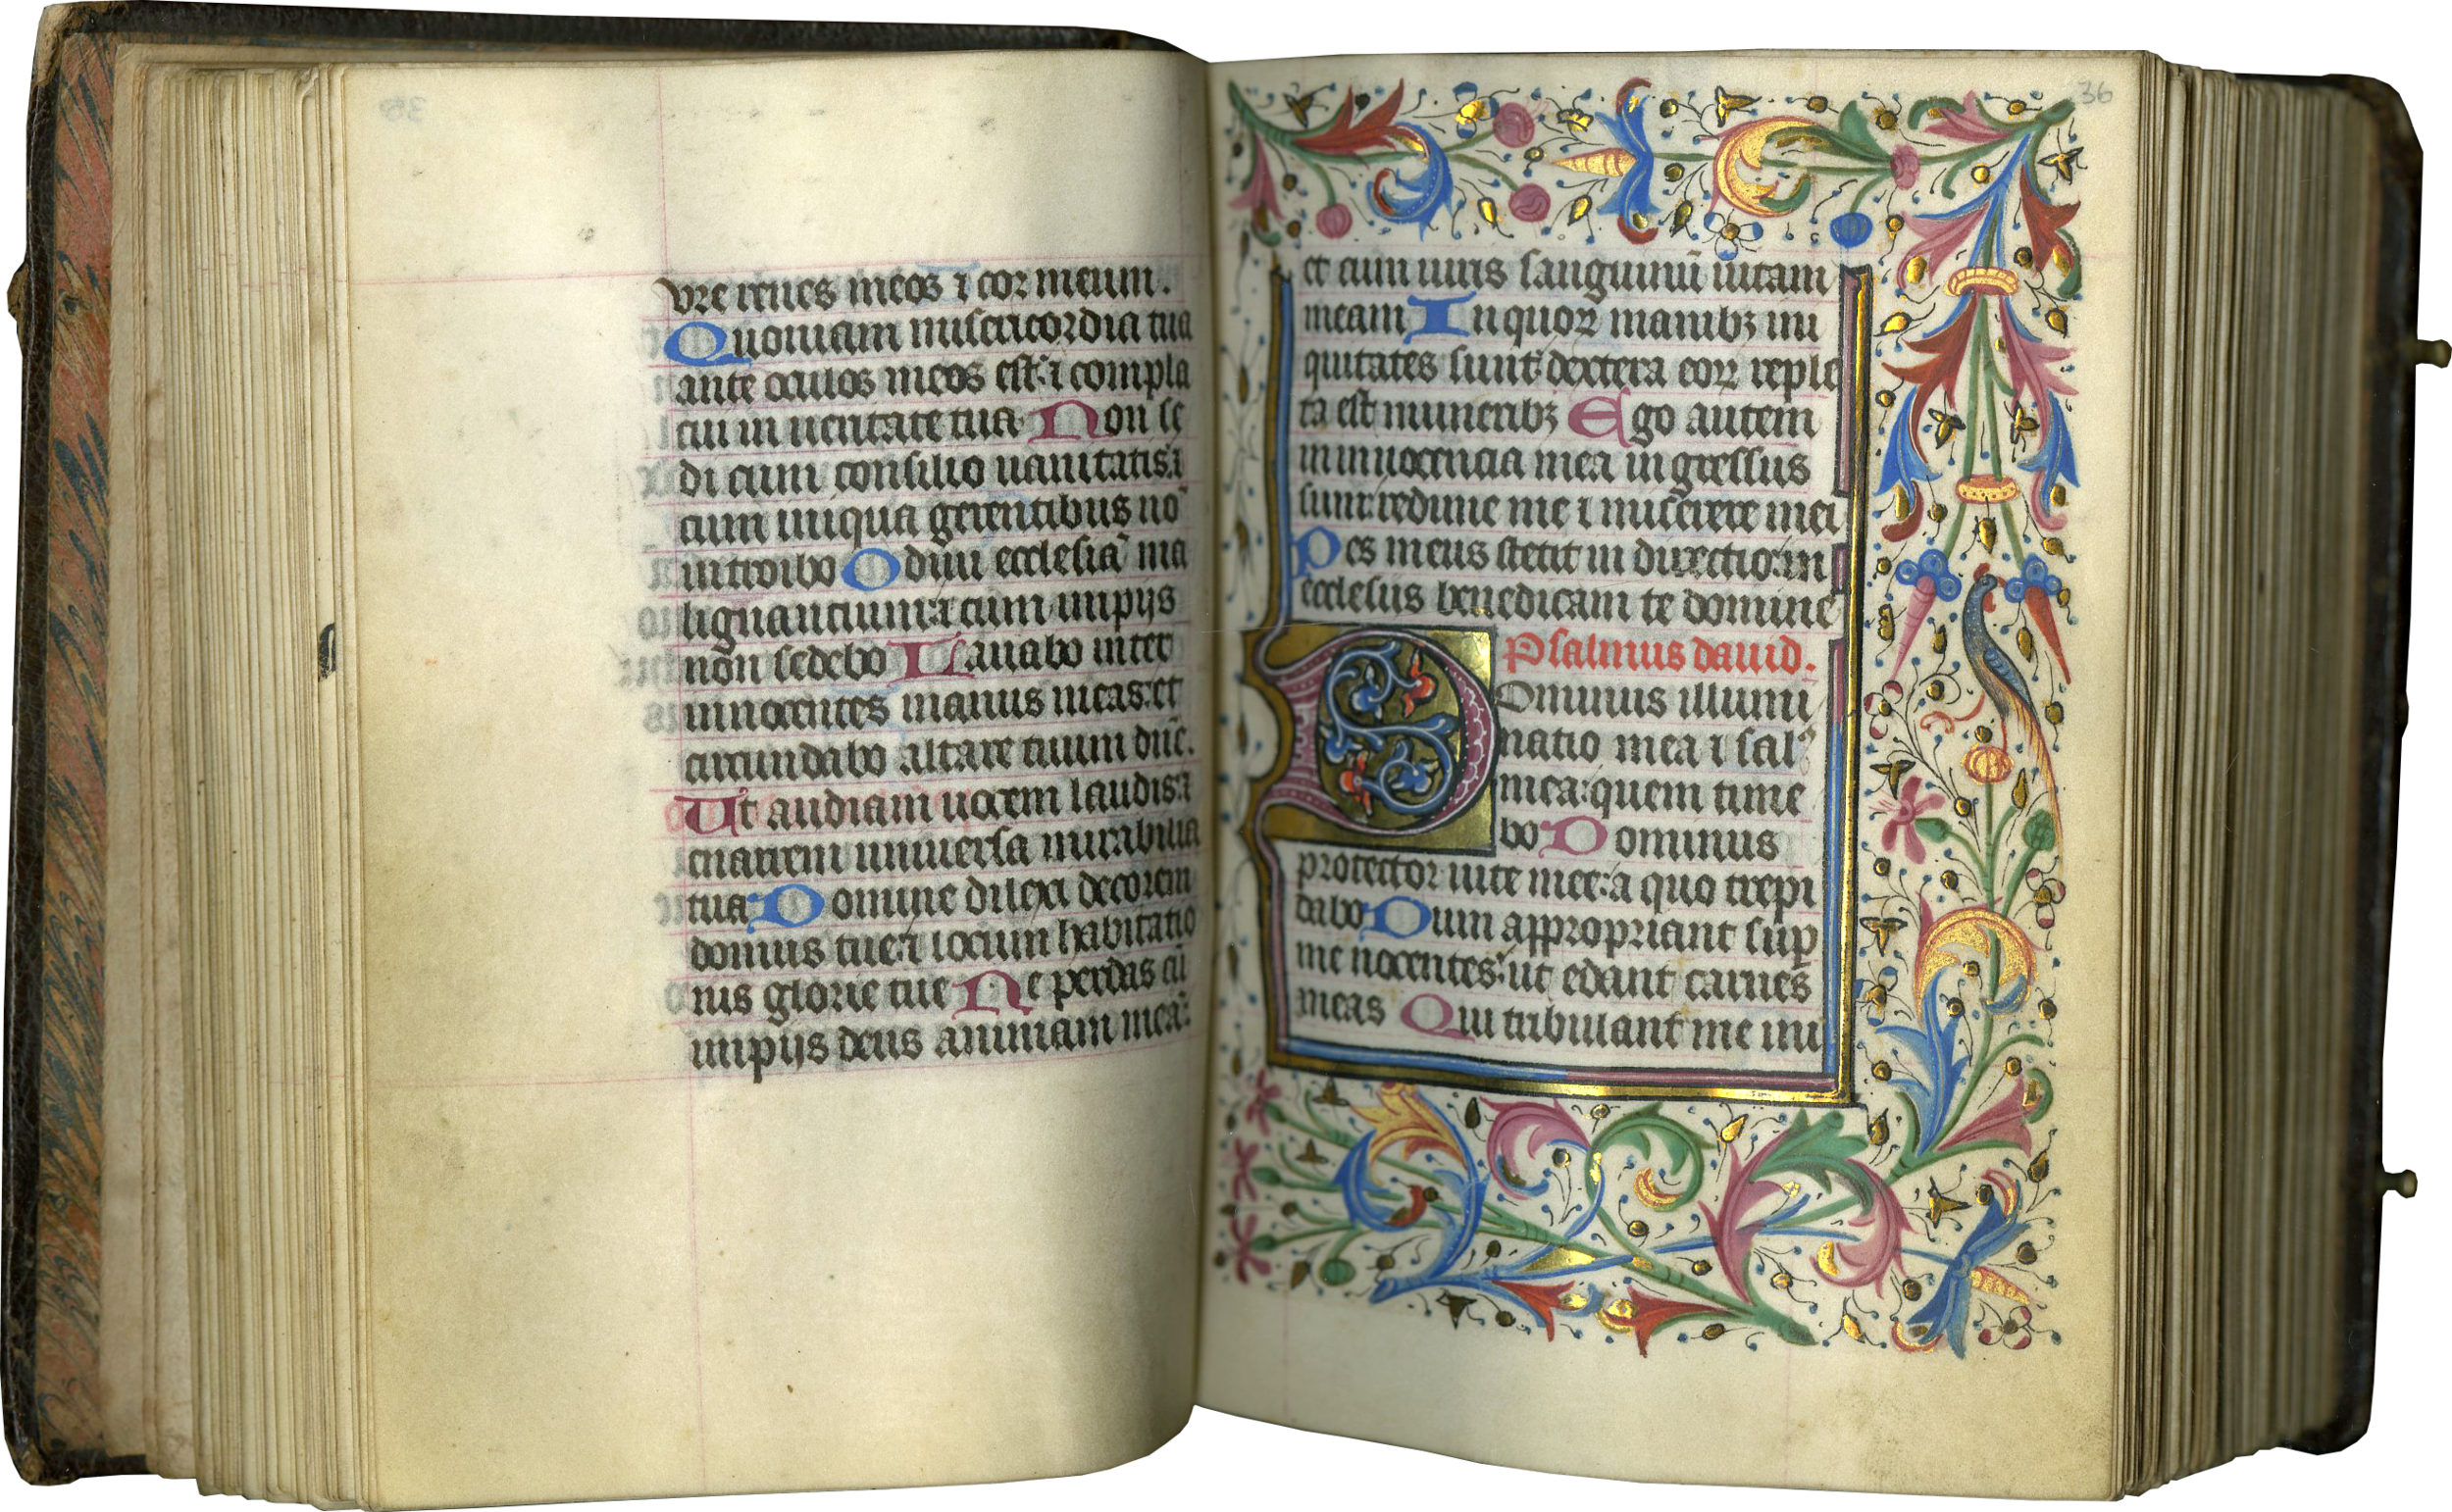 vre renes meos ⁊ cor meum.
Quoniam misericordia tua
ante oculos meos est: ⁊ compla
cui in ueritate tua Non se
di cum consilio uanitatis: ⁊
cum iniqua gerentibus nō
introibo Odiui ecclesiā ma
lignantium: ⁊ cum impijs
non sedebo Lauabo inter
innocentes manus meas: et
circundabo altare tuum dn̄e.
Ut audiam uocem laudis: ⁊
enarrem uniuersa mirabilia
tua Domine dilexi decorem
domus tue: ⁊ locum habitatio
nis glorie tue Ne perdas cū
impijs deus animam meā:
36
et cum uiris sanguinū uitam
meam In quoꝝ manibꝫ ini
quitates sunt: dextera eoꝝ reple
ta est muneribꝫ Ego autem
in innocencia mea ingressus
sum: redime me ⁊ miserere mei
Pes meus stetit in directo: in
ecclesiis benedicam te domine
Psalmus dauid.
Dominus illumi
natio mea ⁊ salꝰ
mea: quem time
bo Dominus
protector uite mee: a quo trepi
dabo Dum appropriant sup̄
me nocentes: ut edant carnes
meas Qui tribulant me ini